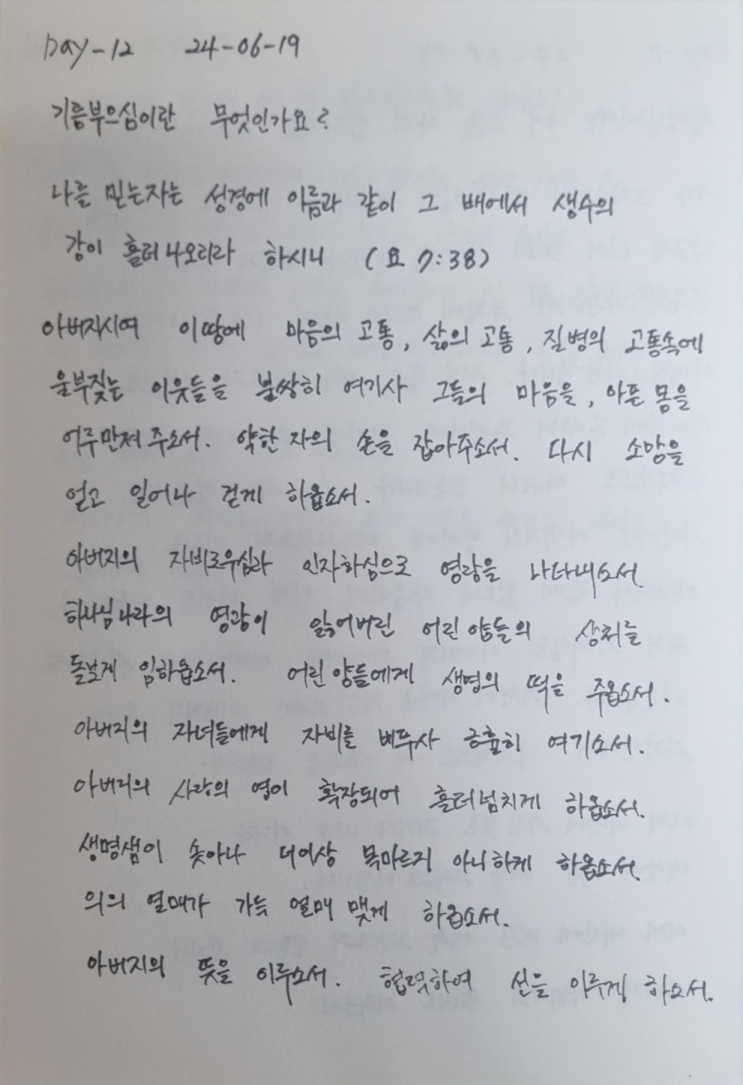 Day-12 24-06-19
기름부으심이란 무엇인가요?
나를 믿는자는 성경에 이름과 같이 그 배에서 생수의
강이 흘러나오리라 하시니 (요 7:38)
아버지시여 이땅에 마음의 고통, 삶의 고통, 질병의 고통속에
울부짖는 이웃들을 불쌍히 여기사 그들의 마음을, 아픈 몸을
어루만져 주소서. 약한 자의 손을 잡아주소서. 다시 소망을
얻고 일어나 걷게 하옵소서.
아버지의 자비로우심과 인자하심으로 영광을 나타내소서.
하나님나라의 영광이 잃어버린 어린 양들의 상처를
돌보게 임하옵소서. 어린 양들에게 생명의 떡을 주옵소서.
아버지의 자녀들에게 자비를 베푸사 긍휼히 여기소서.
아버지의 사랑의 영이 확장되어 흘러넘치게 하옵소서.
생명샘이 솟아나 더이상 목마르지 아니하게 하옵소서.
의의 열매가 가득 열매 맺게 하옵소서.
아버지의 뜻을 이루소서. 협력하여 선을 이루게 하소서.